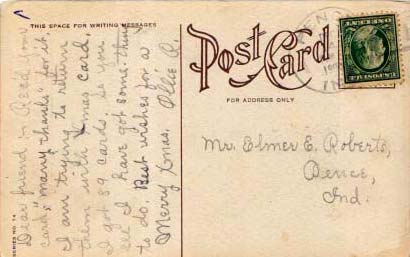 THIS SPACE FOR WRITING MESSAGES
Dear friend :- Recd your
card, "many thanks" for it,
I am trying to return
them with Xmas card,
I got 89 cards. So you
see I have got some-thing
to do. Best wishes for a
Merry Xmas, Ollie R.
SERIES NO. 1A
Post Card
FOR ADDRESS ONLY
Mr. Elmer E. Roberts,
Pence,
Ind.